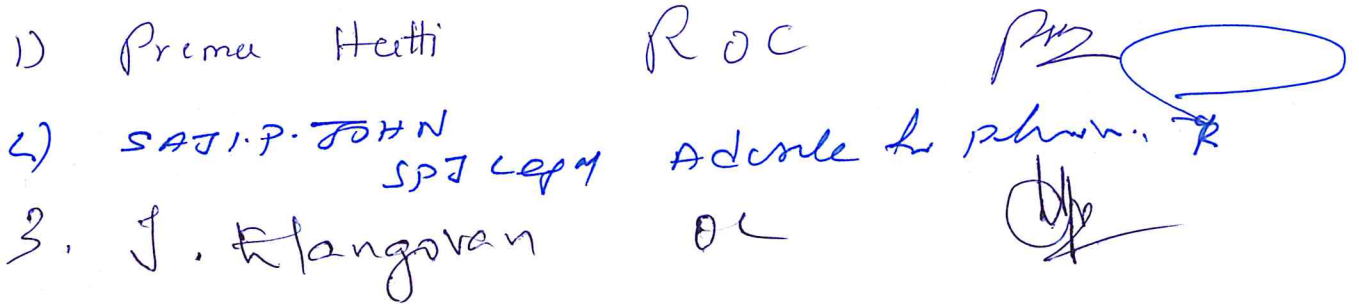 1) Prema Hatti ROC
2) SAJI.P. JOHN
SPJ Legal Advocate for
3. J. Elangovan OL